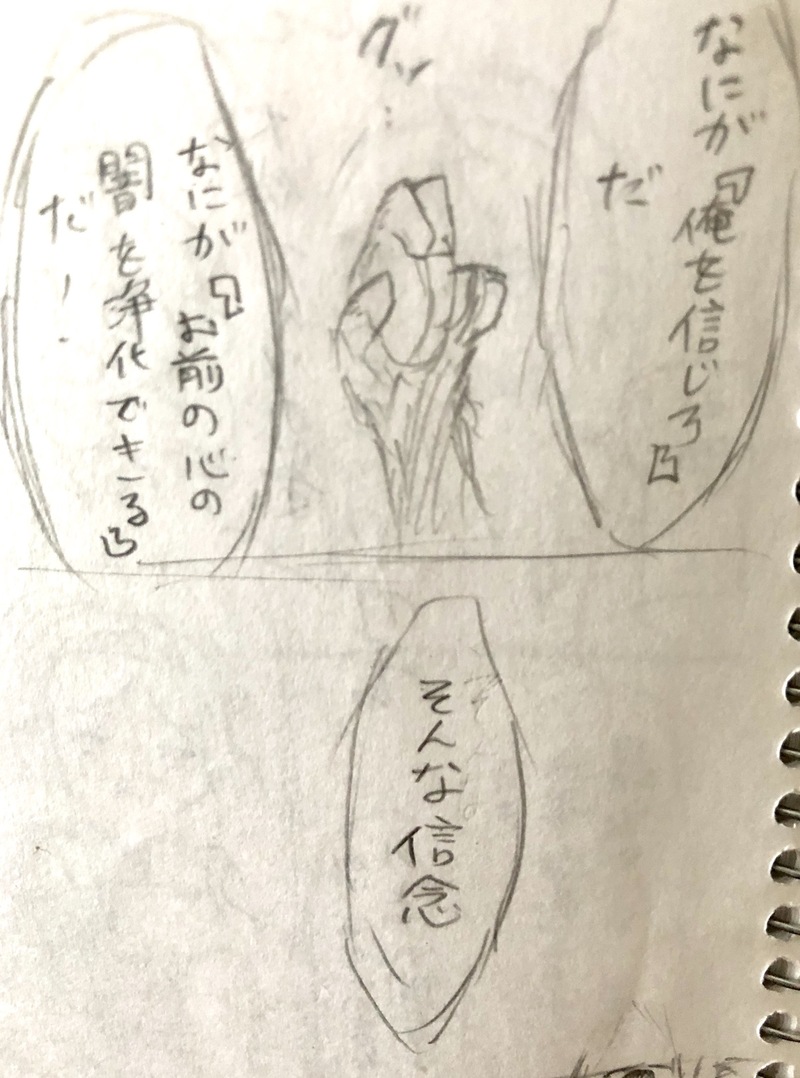 なにが『俺を信じろ』
だ
グッ…
なにが『お前の心の
闇を浄化できる』
だ!
そんな信念